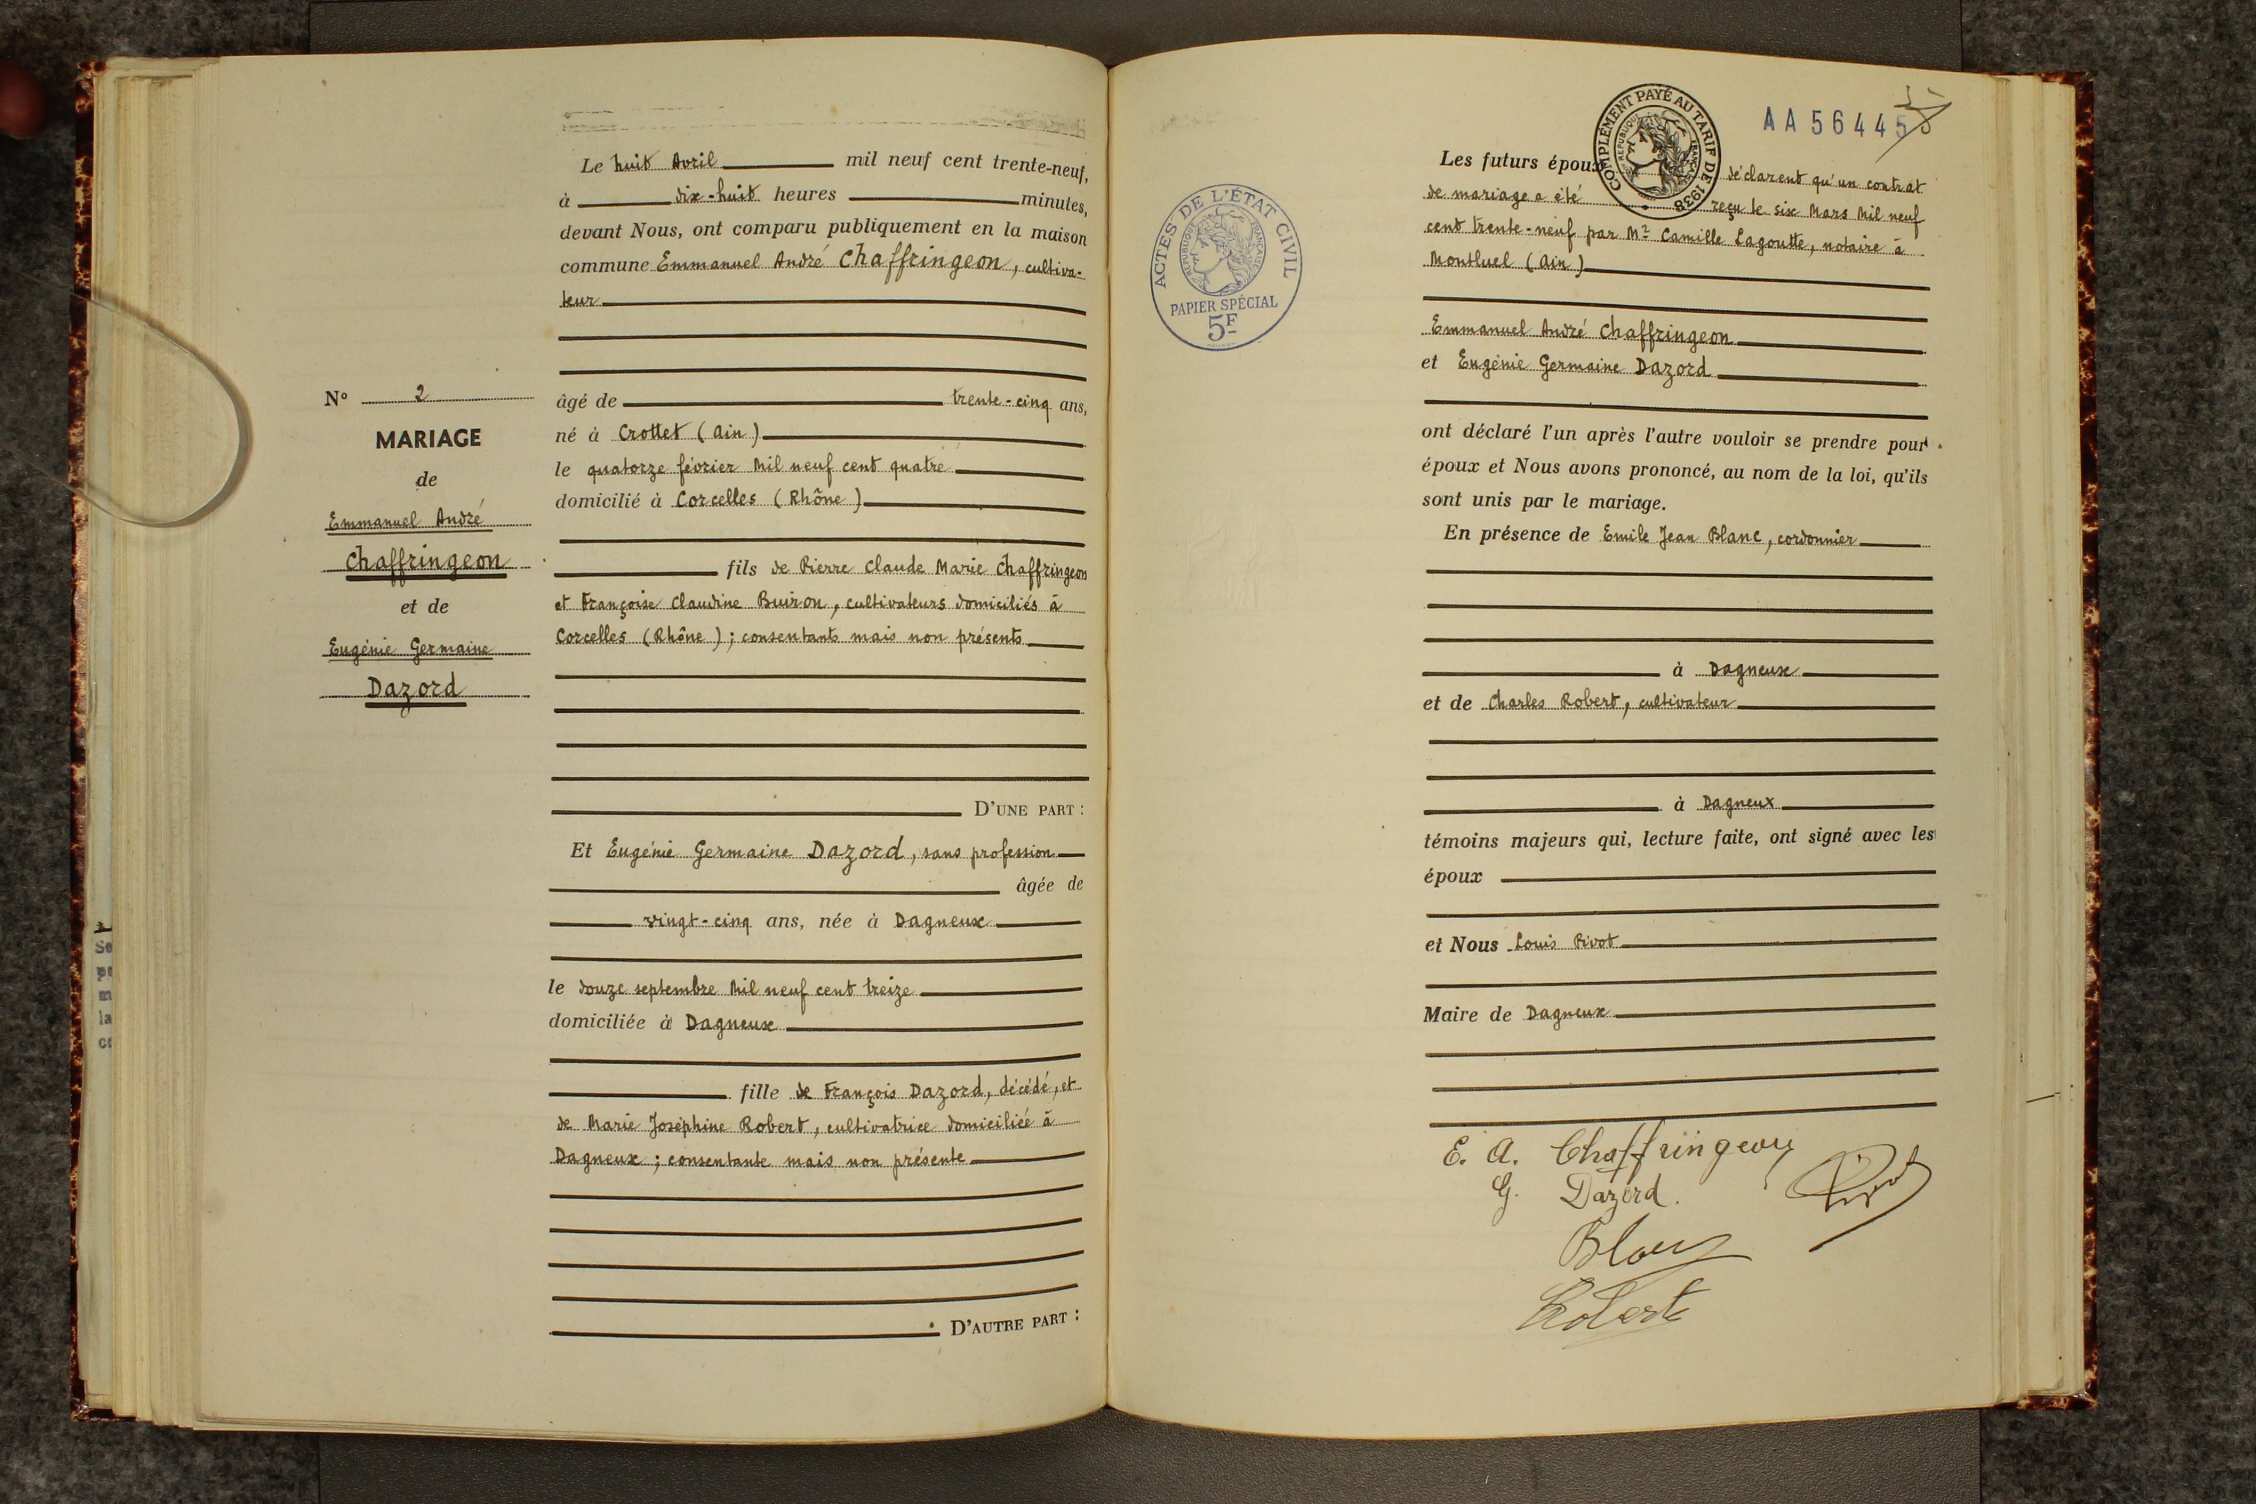 Le huit Avril mil neuf cent trente-neuf,
à dix-huit heures minutes,
devant Nous, ont comparu publiquement en la maison
commune Emmanuel André Chaffringeon, cultiva-
teur
N° 2
MARIAGE
de
Emmanuel André
Chaffringeon
et de
Eugénie Germaine
Dazord
âgé de trente-cinq ans,
né à Crottet (Ain)
le quatorze février Mil neuf cent quatre
domicilié à Corcelles (Rhône)
fils de Pierre Claude Marie Chaffringeon
et Françoise Claudine Buiron, cultivateurs domiciliés à
Corcelles (Rhône) ; consentants mais non présents
D'UNE PART :
Et Eugénie Germaine Dazord, sans profession
âgée de
vingt-cinq ans, née à Dagneux
le douze septembre Mil neuf cent treize
domiciliée à Dagneux
fille de François Dazord, décédé, et
de Marie Joséphine Robert, cultivatrice domiciliée à
Dagneux ; consentante mais non présente
D'AUTRE PART :
ACTES DE L'ÉTAT CIVIL
RÉPUBLIQUE FRANÇAISE
PAPIER SPÉCIAL
5F
COMPLÉMENT PAYÉ AU TARIF DE 1938
RÉPUBLIQUE FRANÇAISE
AA 56445
Les futurs époux déclarent qu'un contrat
de mariage a été reçu le six Mars Mil neuf
cent trente-neuf par Me Camille Lagoutte, notaire à
Montluel (Ain)
Emmanuel André Chaffringeon
et Eugénie Germaine Dazord
ont déclaré l'un après l'autre vouloir se prendre pour
époux et Nous avons prononcé, au nom de la loi, qu'ils
sont unis par le mariage.
En présence de Emile Jean Blanc, cordonnier
à Dagneux
et de Charles Robert, cultivateur
à Dagneux
témoins majeurs qui, lecture faite, ont signé avec les
époux
et Nous Louis Pivot
Maire de Dagneux
E. A. Chaffringeon
G. Dazord.
Pivot
Blanc
Robert